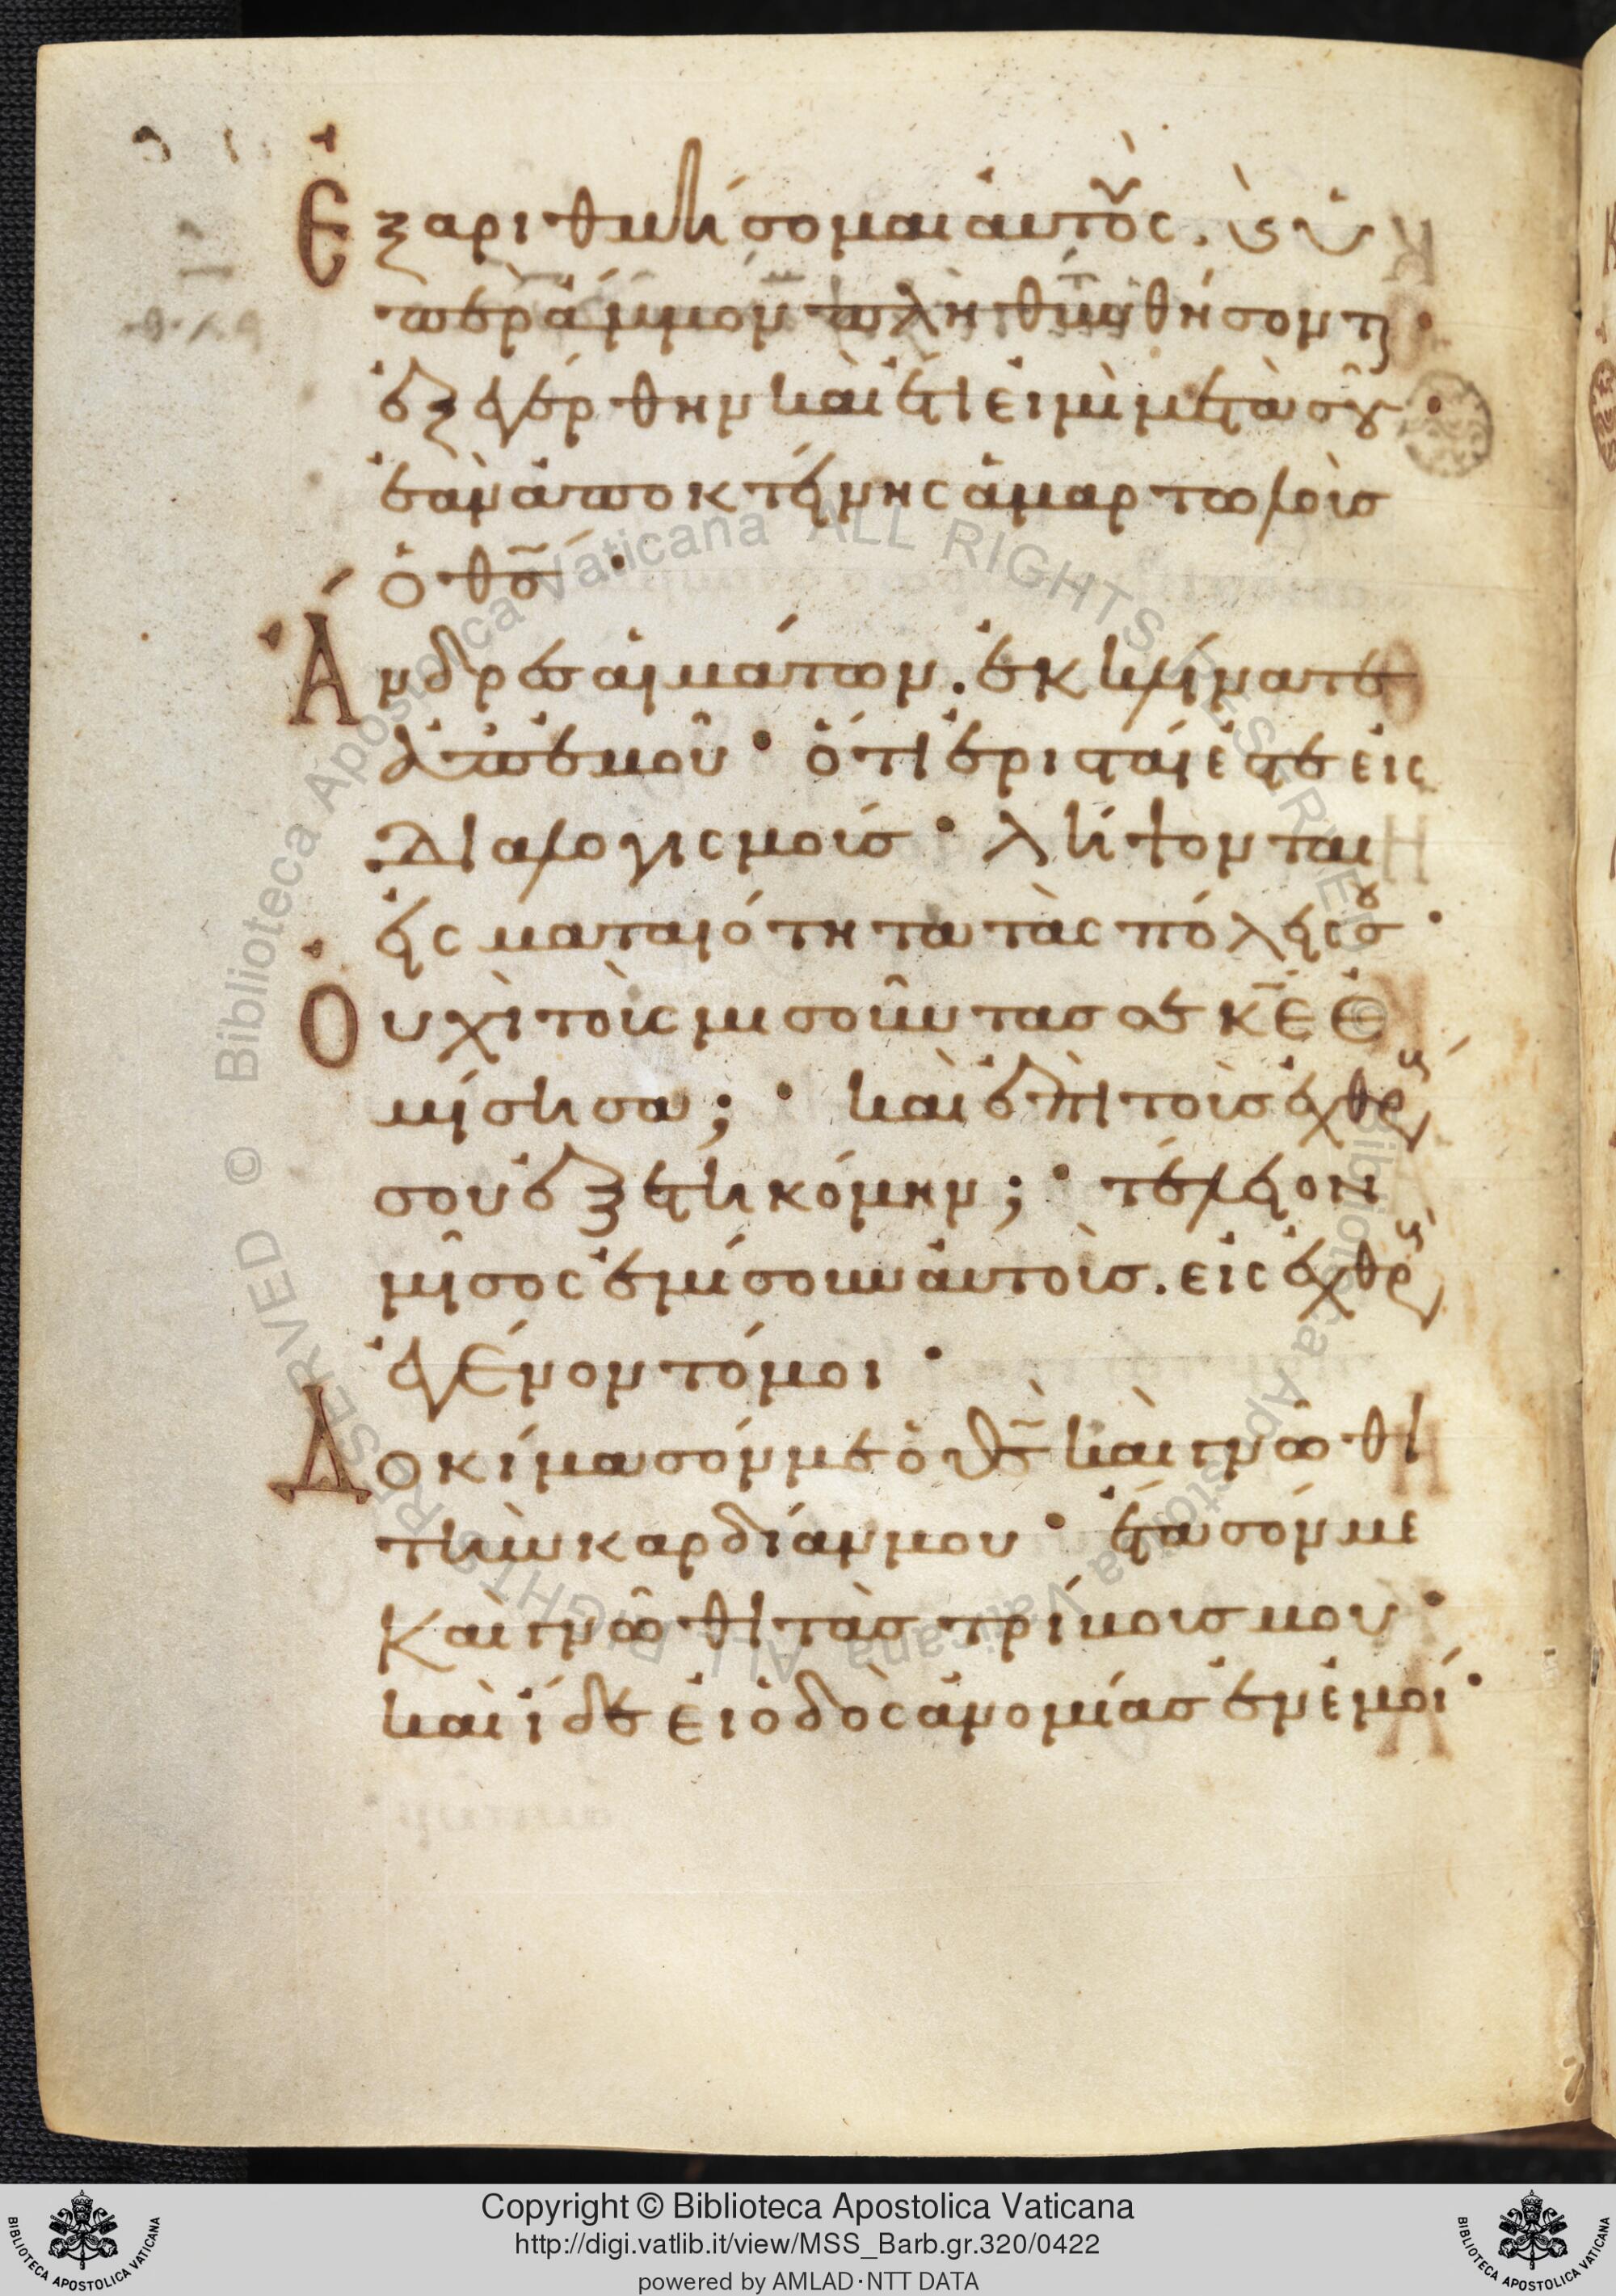 Ἐξαριθμήσομαι αὐτοὺς. ὑ
πὲρ ἄμμον πληθυνθήσοντ
ἐξηγέρθην καὶ ἔτι εἰμὶ μετὰ σοῦ
ἐὰν ἀποκτείνης ἁμαρτωλοὺσ
ὁ θσ
Ἄνδρεσ αἱμάτων. ἐκκλίνατε
ἀπ' ἐμοῦ · ὅτι ἐρισταί ἐστε εἰς
διαλογισμοίσ · λήψονται
εἰς ματαιότητα τὰς πόλεις σου
Οὐχὶ τοὺς μισοῦντασ σε κε ἐ
μίσησα; · καὶ ἐπὶ τοῖσ ἐχθρ
σου ἐξετηκόμην; · τέλειον
μῖσος ἐμίσουν αὐτοὺσ. εἰς ἐχθρ
ἐγένοντό μοι ·
Δοκίμασόν με ὁ θσ καὶ γνῶθι
τὴν καρδίαν μου · ἔτασόν με
καὶ γνῶθι τὰσ τρίβουσ μου ·
καὶ ἴδε εἰ ὁδὸς ἀνομίασ ἐν ἐμοί ·
© Biblioteca Apostolica Vaticana ALL RIGHTS RESERVED
Copyright © Biblioteca Apostolica Vaticana
http://digi.vatlib.it/view/MSS_Barb.gr.320/0422
powered by AMLAD·NTT DATA
BIBLIOTECA APOSTOLICA VATICANA
BIBLIOTECA APOSTOLICA VATICANA